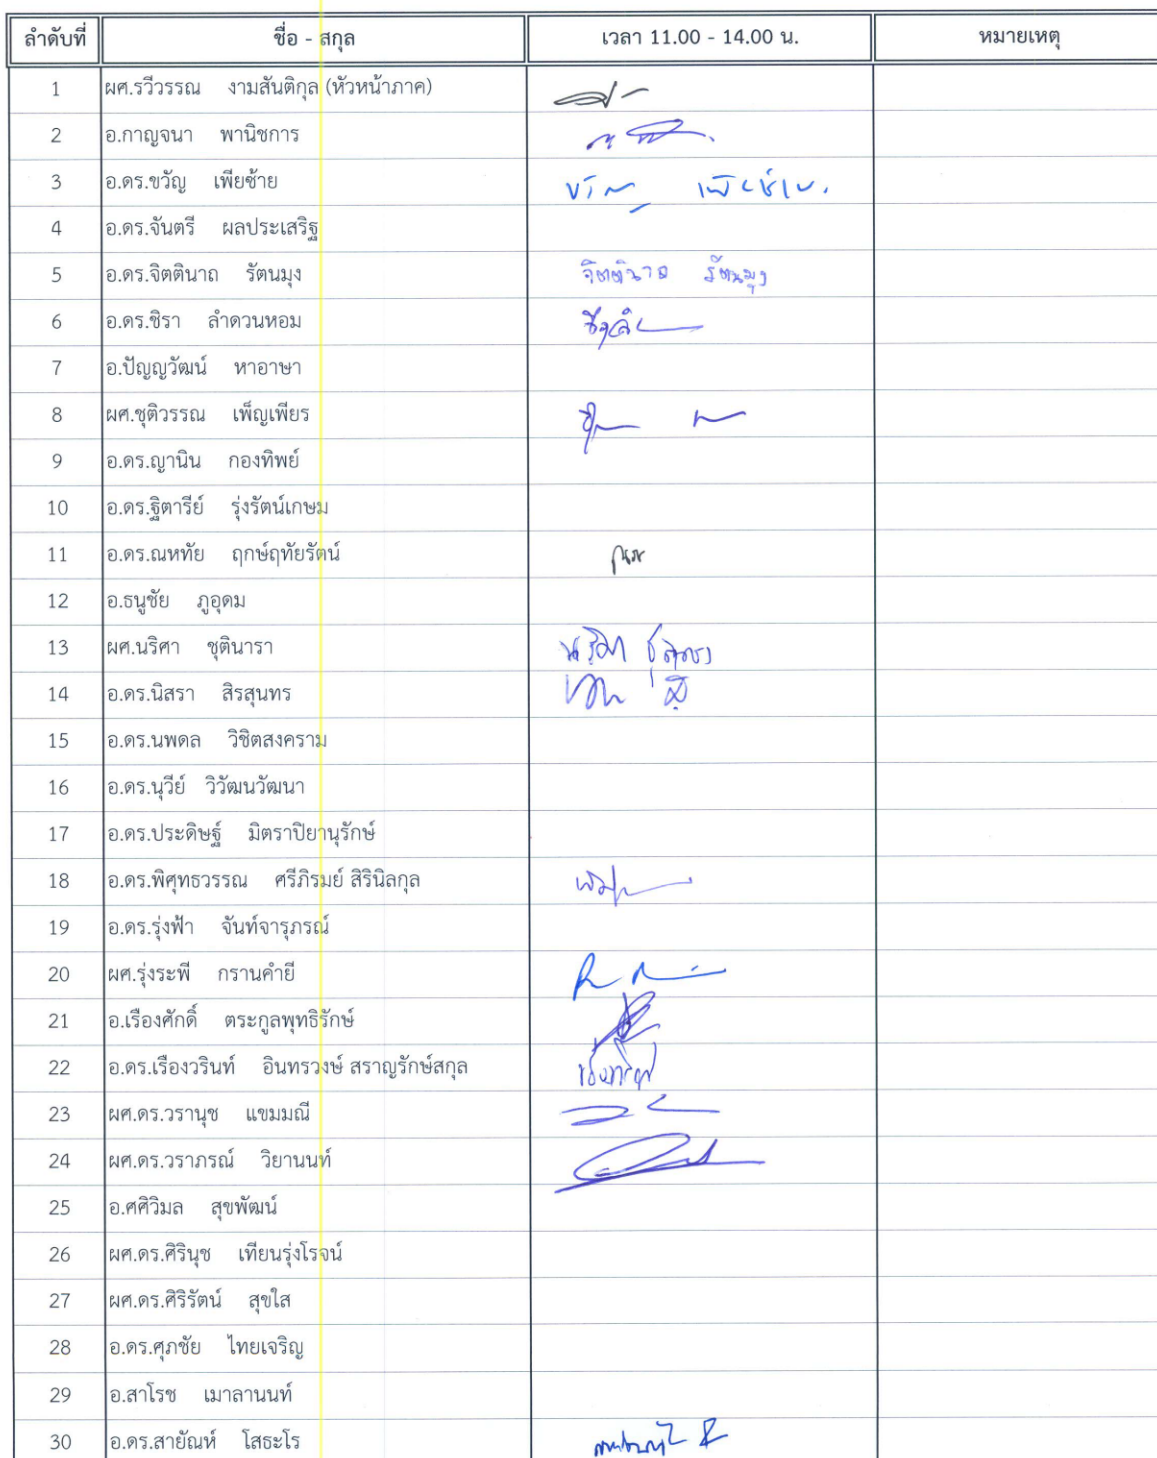 ลำดับที่ ชื่อ - สกุล เวลา 11.00 - 14.00 น. หมายเหตุ
1 ผศ.รวีวรรณ งามสันติกุล (หัวหน้าภาค)
2 อ.กาญจนา พานิชการ
3 อ.ดร.ขวัญ เพียซ้าย ขวัญ เพียซ้าย
4 อ.ดร.จันตรี ผลประเสริฐ
5 อ.ดร.จิตตินาถ รัตนมุง จิตตินาถ รัตนมุง
6 อ.ดร.ชิรา ลำดวนหอม
7 อ.ปัญญวัฒน์ หาอาษา
8 ผศ.ชุติวรรณ เพ็ญเพียร
9 อ.ดร.ญานิน กองทิพย์
10 อ.ดร.ฐิตารีย์ รุ่งรัตน์เกษม
11 อ.ดร.ณหทัย ฤกษ์ฤทัยรัตน์
12 อ.ธนูชัย ภูอุดม
13 ผศ.นริศา ชุตินารา
14 อ.ดร.นิสรา สิรสุนทร
15 อ.ดร.นพดล วิชิตสงคราม
16 อ.ดร.นุวีย์ วิวัฒนวัฒนา
17 อ.ดร.ประดิษฐ์ มิตราปิยานุรักษ์
18 อ.ดร.พิศุทธวรรณ ศรีภิรมย์ สิรินิลกุล
19 อ.ดร.รุ่งฟ้า จันท์จารุภรณ์
20 ผศ.รุ่งระพี กรานคำยี
21 อ.เรืองศักดิ์ ตระกูลพุทธิรักษ์
22 อ.ดร.เรืองวรินท์ อินทรวงษ์ สราญรักษ์สกุล
23 ผศ.ดร.วรานุช แขมมณี
24 ผศ.ดร.วราภรณ์ วิยานนท์
25 อ.ศศิวิมล สุขพัฒน์
26 ผศ.ดร.ศิรินุช เทียนรุ่งโรจน์
27 ผศ.ดร.ศิริรัตน์ สุขใส
28 อ.ดร.ศุภชัย ไทยเจริญ
29 อ.สาโรช เมาลานนท์
30 อ.ดร.สายัณห์ โสธะโร